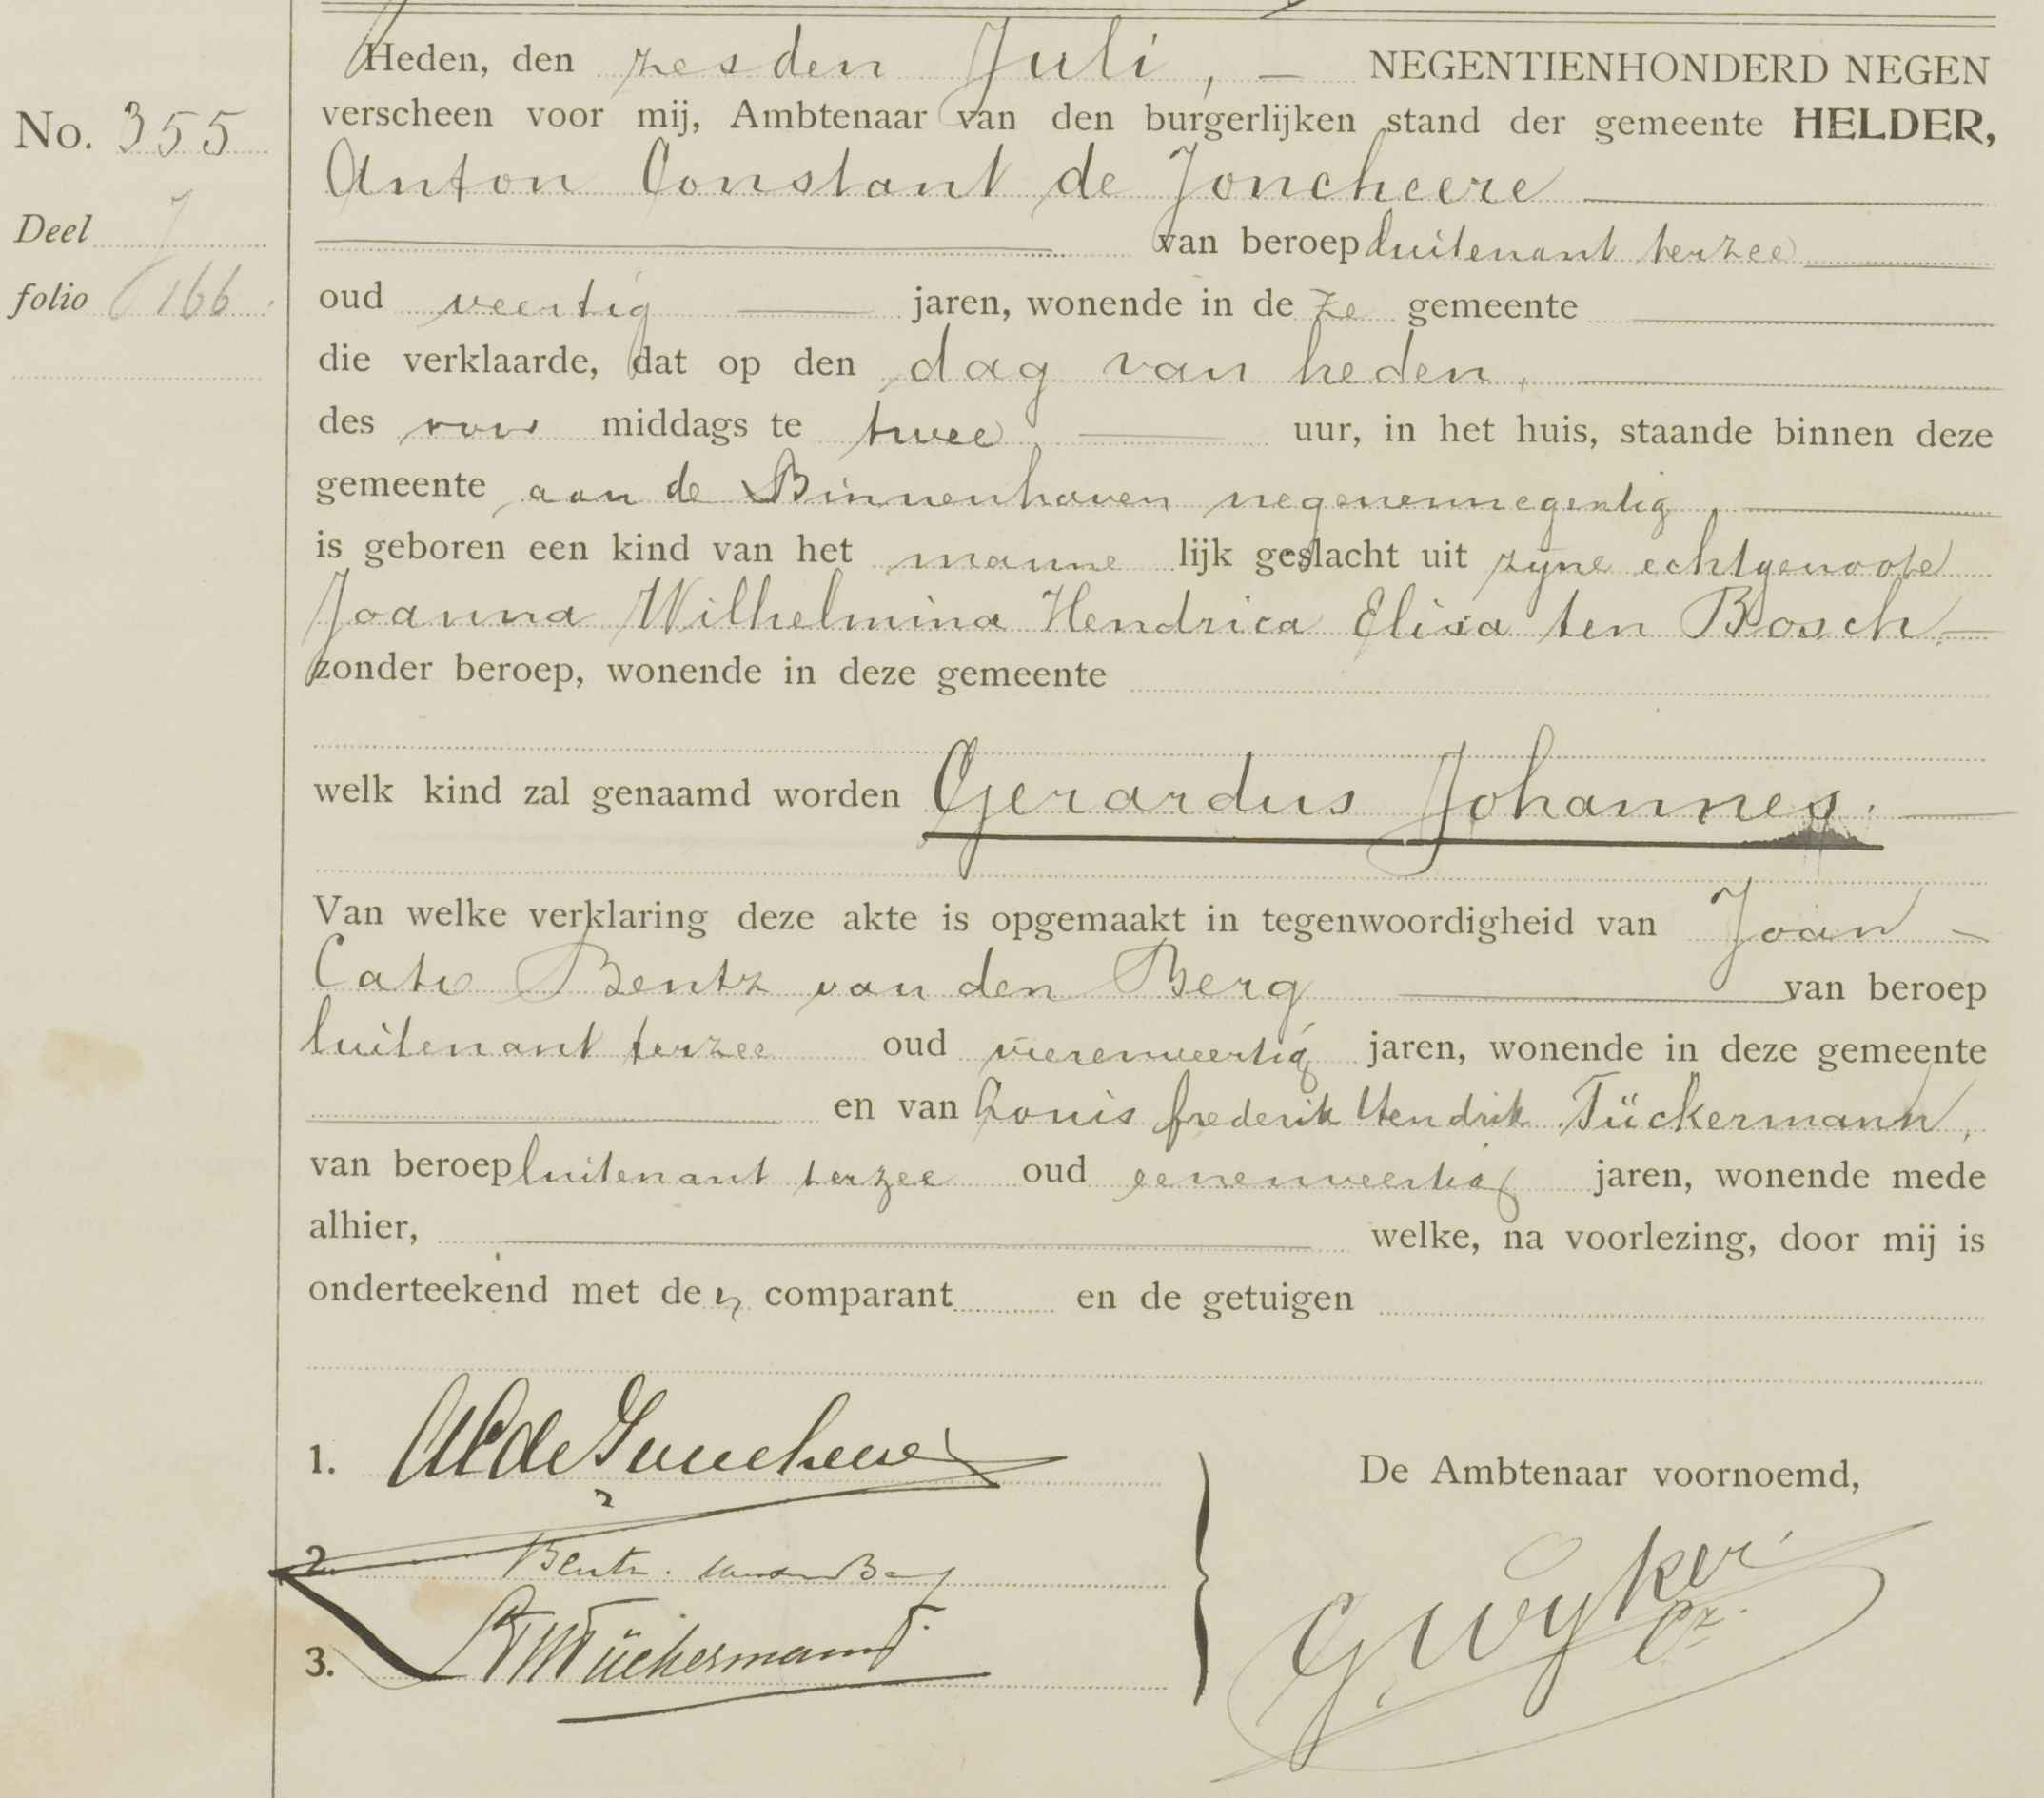 Heden, den zesden Juli, — NEGENTIENHONDERD NEGEN
No. 355
verscheen voor mij, Ambtenaar van den burgerlijken stand der gemeente HELDER,
Anton Constant de Joncheere
Deel J
van beroep luitenant terzee
folio 166
oud veertig jaren, wonende in deze gemeente
die verklaarde, dat op den dag van heden,
des voor middags te twee uur, in het huis, staande binnen deze
gemeente aan de Binnenhaven negenennegentig,
is geboren een kind van het mannelijk geslacht uit zijne echtgenoote
Joanna Wilhelmina Hendrica Elisa ten Bosch
zonder beroep, wonende in deze gemeente
welk kind zal genaamd worden Gerardus Johannes.
Van welke verklaring deze akte is opgemaakt in tegenwoordigheid van Joan
Cato Bentz van den Berg van beroep
luitenant terzee oud vierenveertig jaren, wonende in deze gemeente
en van Louis Frederik Hendrik Tückermann,
van beroep luitenant terzee oud eenenveertig jaren, wonende mede
alhier, welke, na voorlezing, door mij is
onderteekend met den comparant en de getuigen
1. AC de Joncheere
De Ambtenaar voornoemd,
2. Bentz van den Berg
3. Tückermann
G Wyker Cz.